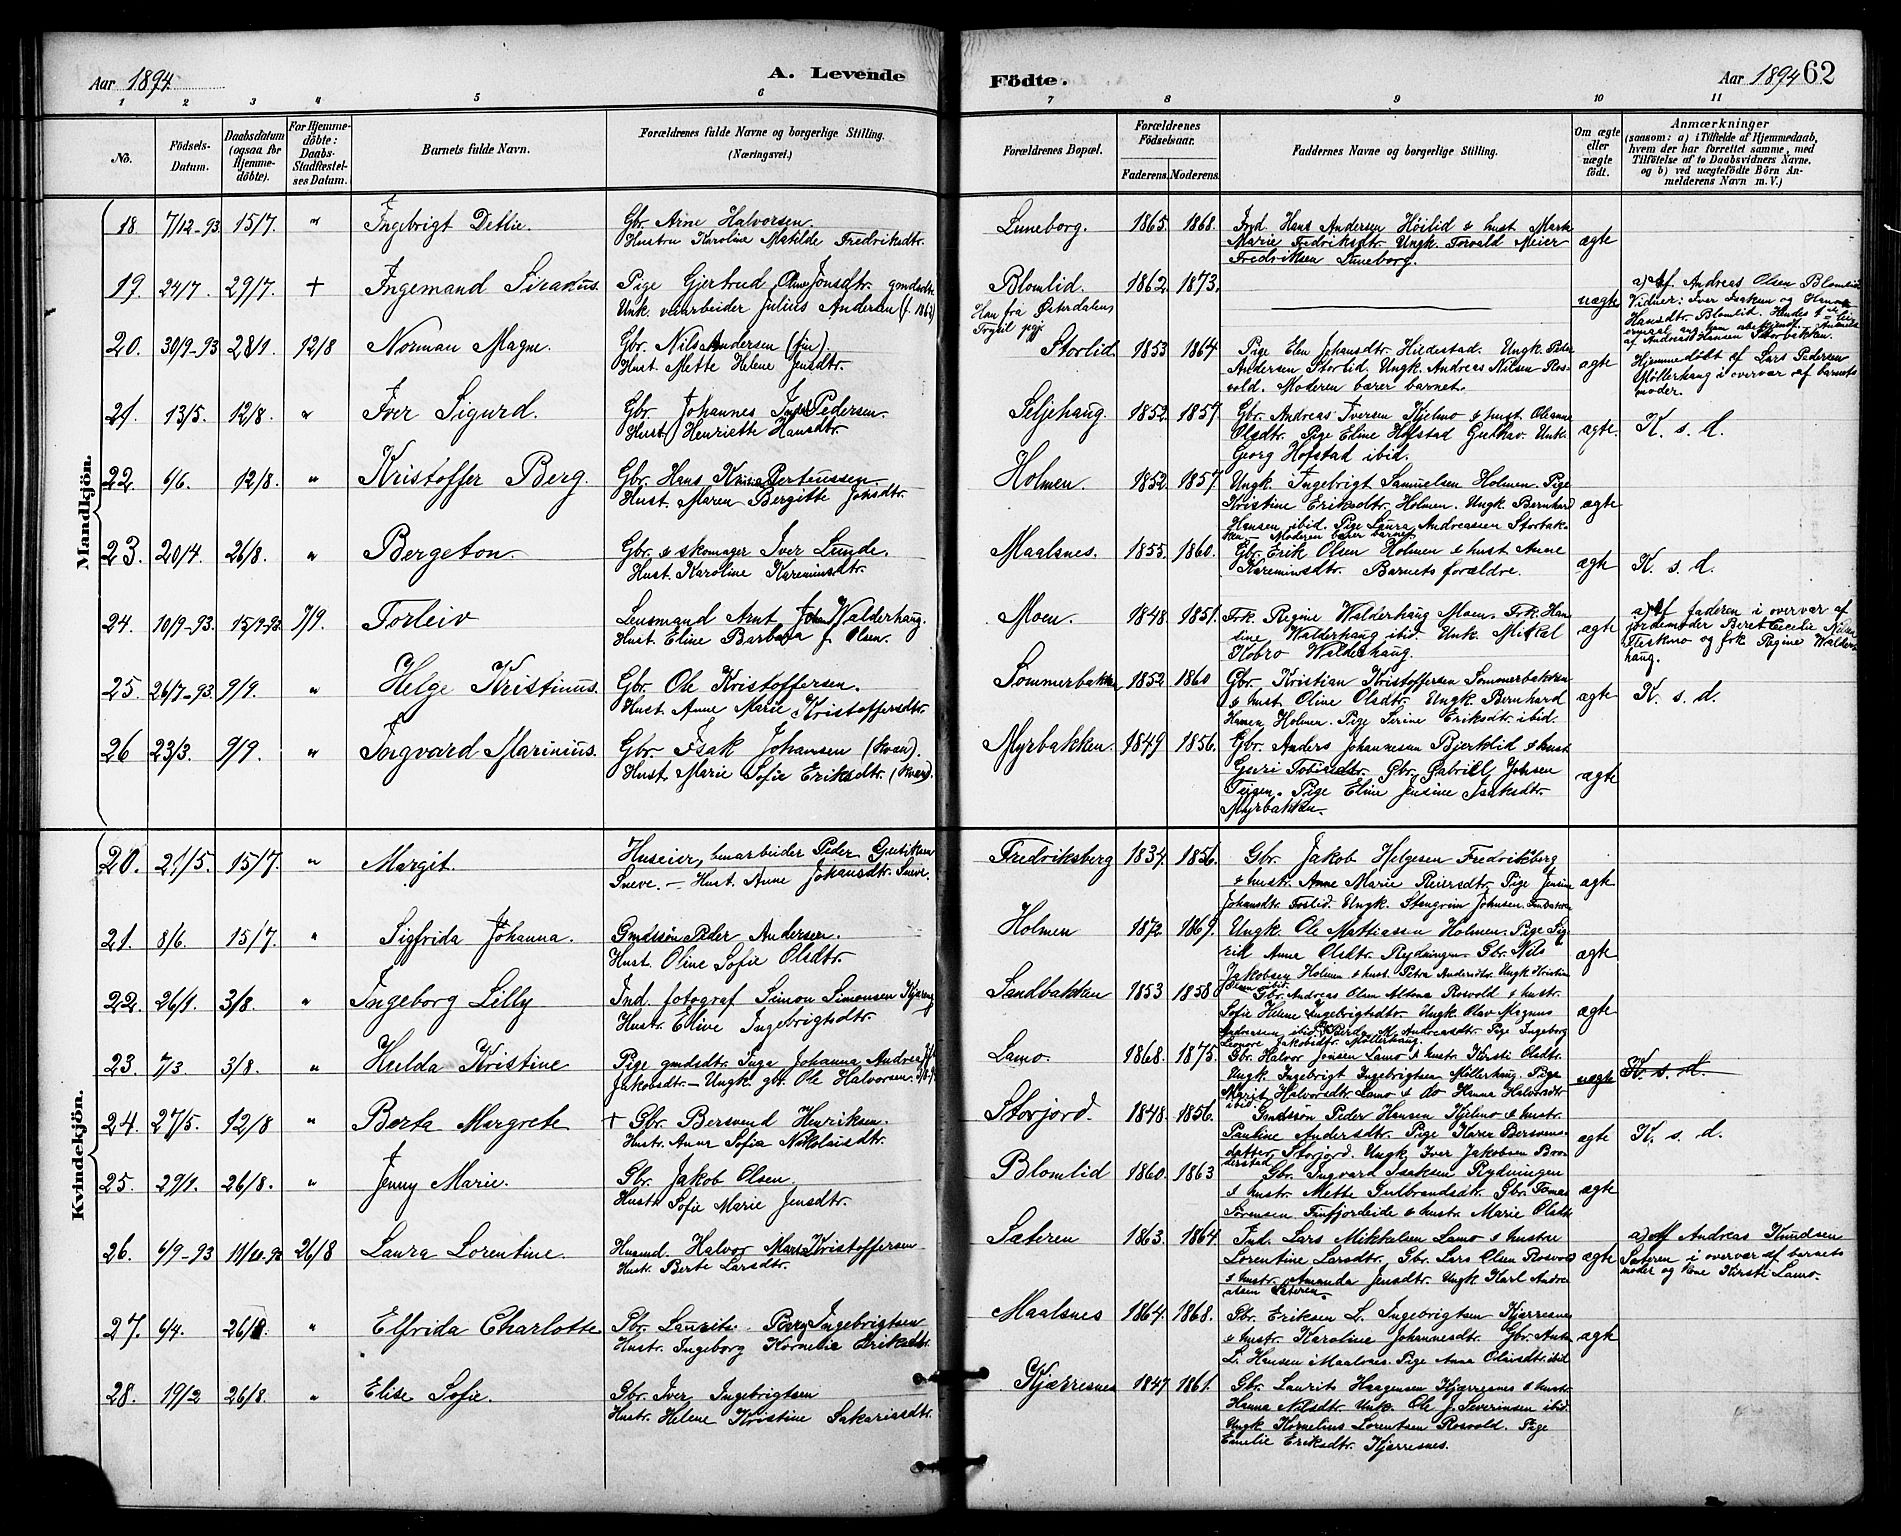 Aar 1894. A. Levende Födte. Aar 1894 62
1 2 3 4 5 6 7 8 9 10 11
No. Födsels-Datum. Daabsdatum (ogsaa for Hjemmedöbte). For Hjemmedöbte: Daabs-Stadfæstelses Datum. Barnets fulde Navn. Forældrenes fulde Navne og borgerlige Stilling. (Næringsvei.) Forældrenes Bopæl. Forældrenes Födselsaar. Faderens. Moderens. Faddernes Navne og borgerlige Stilling. Om ægte eller uægte födt. Anmærkninger (saasom: a) i Tilfælde af Hjemmedaab, hvem der har forrettet samme, med Tilföielse af to Daabsvidners Navne. og b) ved uægtefödte Börn Anmelderens Navn m. V.)
Mandkjön.
18. 7/12-93 15/7. " Ingebrigt Detlie. Gbr. Arne Halvorsen Luneborg. 1865. 1868. Hans Andersen Höilid & hust Mark
Hustru Karoline Matilde Fredriksdtr. Marie Fredriksdtr. Ungk. Torvald Meier ægte
Fredriksen Luneborg.
19. 24/7. 29/7. + Ingemand Sirakus. Pige Gjertrud Oline Jonsdtr. gmdsdtr Blomlid. 1862 1873. uægte a) Af Andreas Olsen Blomlid
Unk. Julius Andersen (f. 1862) Han fra Østerdalen Vidner: Iver Isaksen og Hanna
Trysil pgj. Hansdtr Blomlid.
af Andreas Hansen Storbakken.
20. 30/9-93 28/1. 12/8 Norman Magn. Gbr. Nils Andersen (fin). Storlid. 1853 1864. Pige Elen Johansdtr. Hildestad. Ungk. Peder
Hust. Mette Helene Jensdtr. Andersen Storlid. Ungk. Andreas Nilsen Rosvold. Moderen bærer barnet. ægte Hjemmedöbt af Lars Pedersen
Möllerhaug i overvær af barnets
moder.
21. 13/5. 12/8. " Iver Sigurd. Gbr. Johannes Pedersen. Seljehaug. 1852. 1857. Gbr. Andreas Iversen Kjelmo & hust Oleanna
Hust. Henriette Hansdtr. Olsdtr. Pige Eline Hofstad Unk. ægte. K. s. d.
Georg Hofstad ibid.
22. 6/6. 12/8. " Kristoffer Berg. Gbr. Hans Perteussen Holmen. 1852. 1857. Ungk. Ingebrigt Samuelsen Holmen. Pige
Hust. Maren Bergitte Johsdtr. Kristine Eriksdtr. Holmen. Ungk. Bernhard ægte
Hansen ibid. Pige Laura Andreassen Storbakken. - Moderen bærer barnet.
23. 20/4. 26/8. " Bergeton Gbr. & skomager Iver Lunde. Maalsnes. 1855. 1860. Gbr. Erik Olsen Holmen & hust Anne
Hust. Karoline Kareminsdtr. Kareminsdtr. Barnets forældre. ægte K. s. d.
24. 10/9-93. 15/9-93. 7/9. Torleiv Lensmand Arnt Johan Walderhaug. Moen. 1848. 1851. Frk. Regine Walderhaug Moen. Frk. Hanline Walderhaug ibid. Unk. Mikal ægte a) Af faderen i overvær af
Hust. Eline Barbara f. Olsen. Kobro Walderhaug. jordemoder Beret Cecilie Nilsen
Fleskmo og frk Regine Walderhaug.
25. 26/7-93. 9/9. " Helge Kristinus. Gbr. Ole Kristoffersen. Sommerbakken 1852. 1860 Gbr. Kristian Kristoffersen Sommerbakken
Hust. Anne Marie Kristoffersdtr. & hust Oline Olsdtr. Ungk Bernhard ægte K. s. d.
Hansen Holmen. Pige Serine Eriksdtr. ibid.
26 23/3. 9/9. " Ingvard Marinius. Gbr. Isak Johansen (kvæn) Myrbakken. 1849. 1856. Gbr. Anders Johannesen Bjerklid & hust
Hust. Marie Sofie Eriksdtr. (kvæn). Guri Tobiasdtr. Gbr. Gabriel Johsen ægte
Teigen. Pige Eline Jensine Isaksdtr.
Myrbakken.
Kvindekjön.
20. 21/5. 15/7. " Margit. Huseier, Peder Fredriksberg 1834. 1856. Gbr. Jakob Helgesen Fredriksberg
Sneve. - Hust. Anne Johansdtr. Sneve. & hustr. Anne Marie Reiersdtr. Pige Jensine ægte
Johansdtr. Foslid. Ungk. Stengrim Johnsen.
21. 8/6. 15/7. " Sigfrida Johanna. Gmdssön Peder Andersen. Holmen 1872. 1869. Ungk. Ole Mattiasen Holmen. Pige Sigrid Anne Olsdtr. Rydningen. Gbr. Nils ægte
Hust. Oline Sofie Olsdtr. Jakobsen Holmen & hust. Petra Andersdtr. Ungk Kristian
Olsen ibid.
22. 26/1. 3/8. " Ingeborg Lilly Ind. fotograf Simon Simonsen Sandbakken 1853 1858. Gbr. Andreas Olsen Altona Rosvold & hustr.
Hustr. Eline Ingebrigtsdtr. Sofie Helene Ingebrigtsdtr. Ungk Olav Magnus ægte
Andreasen ibid. Berda M. Andreasdtr. Pige Ingeborg
Leonore Jakobsdtr. Möllerhaug.
23. 7/3 3/8. " Hulda Kristine Pige gmdsdtr. Inga Johanna Andrea Lamo. 1868. 1875. Gbr. Halvor Jensen Lamo & hustr. Kirsti Olsdtr.
Jakobsdtr. - Ungk. gbr. Ole Halvorsen. Ungk. Ingebrigt Ingebrigtsen Möllerhaug. Pige uægte K. s. d.
Marit Halvorsdtr Lamo & do Hanna Halvorsdtr
ibid.
24. 27/5. 12/8 " Berta Margrete + Gbr. Bersvend Henriksen. Storjord. 1848. 1856. Gmdssön Peder Hansen Kjelmo & hustr.
Hustr. Anne Sofia Nikolaisdtr. Pauline Andersdtr. Pige Karen Bersvensdatter Storjord. Ungk Iver Jakobsen ægte K. s. d.
25. 29/1. 26/8. " Jenny Marie. Gbr. Jakob Olsen. Blomlid 1860. 1863 Gbr. Ingvard Isaksen Rydningen
Hustr Sofie Marie Jensdtr. & hustr. Mette Gulbrandsdtr. Gbr. Tomas ægte
Sörensen Finfjordeide & hustr. Marie Olsdtr
26. 6/9-93 11/10-93 26/8 Laura Lorentine. Husmd. Halvor Kristoffersen Sæteren 1863. 1864. Ind. Lars Mikkelsen Lamo & hustru
Hustr. Berte Larsdtr. Lorentine Larsdtr. Gbr. Lars Olsen Rosvold ægte a) Af Andreas Knudsen
& hustr. Amanda Jensdtr. Ungk Karl Andreasen Sæteren. Sæteren i overvær af barnets
moder og kone Kirsti Lamo.
27. 6/4. 26/8. " Elfrida Charlotte Gbr. Laurits Ingebrigtsen Maalsnes 1864. 1868. Gbr. Eriksen L. Ingebrigtsen Kjærresnes
Hustr. Ingeborg Kornelia Eriksdtr. & hustr. Karoline Johannesdtr. Gbr. Anton ægte
L. Hansen i Maalsnes. Pige Anna Olaisdtr. ibid
28. 19/2 26/8. " Elise Sofie. Gbr. Iver Ingebrigtsen Kjærresnes 1847. 1861. Gbr. Laurits Haagensen Kjærresnes & hustr.
Hustr. Helene Kristine Sakariasdtr. Hanna Nilsdtr. Unk. Ole J. Severinsen ibid.
Ungk Kornelius Lorentsen Rosvold. Pige
Emelie Eriksdtr. Kjærresnes.